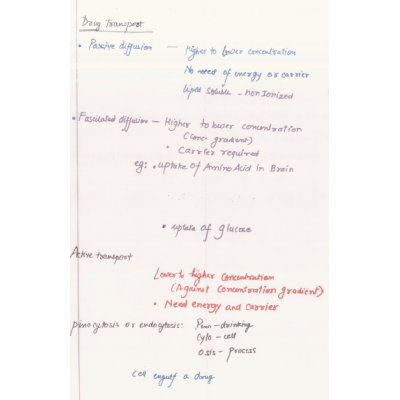 Drug Transport
• Passive diffusion — Higher to lower concentration
No need of energy or carrier
Lipid soluble - non Ionized
• Fascilated diffusion — Higher to lower concentration
(conc. gradient)
• Carrier required
eg: • uptake of Amino Acid in Brain
• uptake of glucose
Active transport
Lower to higher concentration
(Against concentration gradient)
• Need energy and carrier
pinocytosis or endocytosis: Pino - drinking
Cyto - cell
osis - process
Cell engulf a drug